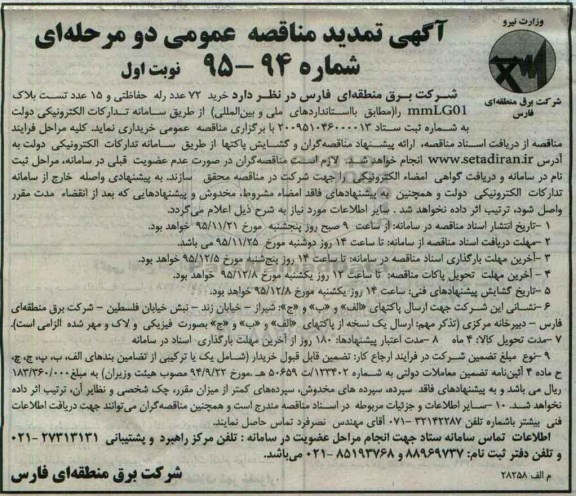 وزارت نیرو
شرکت برق منطقه‌ای فارس
آگهی تمدید مناقصه عمومی دو مرحله‌ای
شماره ۹۴ – ۹۵ نوبت اول
شرکت برق منطقه‌ای فارس در نظر دارد خرید ۷۲ عدد رله حفاظتی و ۱۵ عدد تست بلاک
mmLG01 را(مطابق بااستانداردهای ملی و بین‌المللی) از طریق سامانه تدارکات الکترونیکی دولت
به شماره ثبت ستاد ۲۰۰۹۵۱۰۴۶۰۰۰۰۱۳ با برگزاری مناقصه عمومی خریداری نماید. کلیه مراحل فرایند
مناقصه از دریافت اسناد مناقصه، ارائه پیشنهاد مناقصه‌گران و گشایش پاکتها از طریق سامانه تدارکات الکترونیکی دولت به
آدرس www.setadiran.ir انجام خواهد شد. لازم است مناقصه‌گران در صورت عدم عضویت قبلی در سامانه، مراحل ثبت
نام در سامانه و دریافت گواهی امضاء الکترونیکی را جهت شرکت در مناقصه محقق سازند. به پیشنهادی واصله خارج از سامانه
تدارکات الکترونیکی دولت و همچنین به پیشنهادهای فاقد امضاء مشروط، مخدوش و پیشنهادهایی که بعد از انقضاء مدت مقرر
واصل شود، ترتیب اثر داده نخواهد شد. سایر اطلاعات مورد نیاز به شرح ذیل اعلام می‌گردد.
۱ –تاریخ انتشار اسناد مناقصه در سامانه: از ساعت ۹ صبح روز پنجشنبه مورخ ۹۵/۱۱/۲۱ خواهد بود.
۲ –مهلت دریافت اسناد مناقصه از سامانه: تا ساعت ۱۴ روز دوشنبه مورخ ۹۵/۱۱/۲۵ می باشد.
۳ –آخرین مهلت بارگذاری اسناد مناقصه در سامانه: تا ساعت ۱۴ روز پنج‌شنبه مورخ ۹۵/۱۲/۵ خواهد بود.
۴ – آخرین مهلت تحویل پاکات مناقصه: تا ساعت ۱۲ روز یکشنبه مورخ ۹۵/۱۲/۸ خواهد بود.
۵ – تاریخ گشایش پیشنهادهای فنی: ساعت ۱۴ روز یکشنبه مورخ ۹۵/۱۲/۸ خواهد بود.
۶–نشانی این شرکت جهت ارسال پاکتهای «الف» و «ب» و «ج»: شیراز – خیابان زند – نبش خیابان فلسطین – شرکت برق منطقه‌ای
فارس – دبیرخانه مرکزی (تذکر مهم: ارسال یک نسخه از پاکتهای «الف» و «ب» و «ج» بصورت فیزیکی و لاک و مهر شده الزامی است).
۷– مدت تحویل کالا: ۴ ماه ۸ –مدت اعتبار پیشنهادها: ۱۸۰ روز از آخرین مهلت بارگذاری اسناد در سامانه
۹– نوع مبلغ تضمین شرکت در فرآیند ارجاع کار: تضمین قابل قبول خریدار (شامل یک یا ترکیبی از تضامین بندهای الف، ب، پ، ج، چ،
ح ماده ۴ آئین‌نامه تضمین معاملات دولتی به شماره ۱۲۳۴۰۲/ت ۵۰۶۵۹ هـ مورخ ۹۴/۹/۲۲ مصوب هیئت وزیران) به مبلغ۱۸۳/۳۶۰/۰۰۰
ریال می باشد و به پیشنهادهای فاقد سپرده، سپرده های مخدوش، سپرده‌های کمتر از میزان مقرر، چک شخصی و نظایر آن، ترتیب اثر داده
نخواهد شد. ۱۰ –سایر اطلاعات و جزئیات مربوطه در اسناد مناقصه مندرج است و همچنین مناقصه‌گران می‌توانند جهت دریافت اطلاعات
فنی بیشتر باشماره تلفن ۳۲۱۴۲۲۸۷ –۰۷۱ آقای مهندس نصرفرد تماس حاصل نمایند.
اطلاعات تماس سامانه ستاد جهت انجام مراحل عضویت در سامانه : تلفن مرکز راهبرد و پشتیبانی ۲۷۳۱۳۱۳۱ –۰۲۱
و تلفن دفتر ثبت نام: ۸۸۹۶۹۷۳۷ و ۸۵۱۹۳۷۶۸ –۰۲۱ می‌باشد.
م الف ۲۸۲۵۸
شرکت برق منطقه‌ای فارس